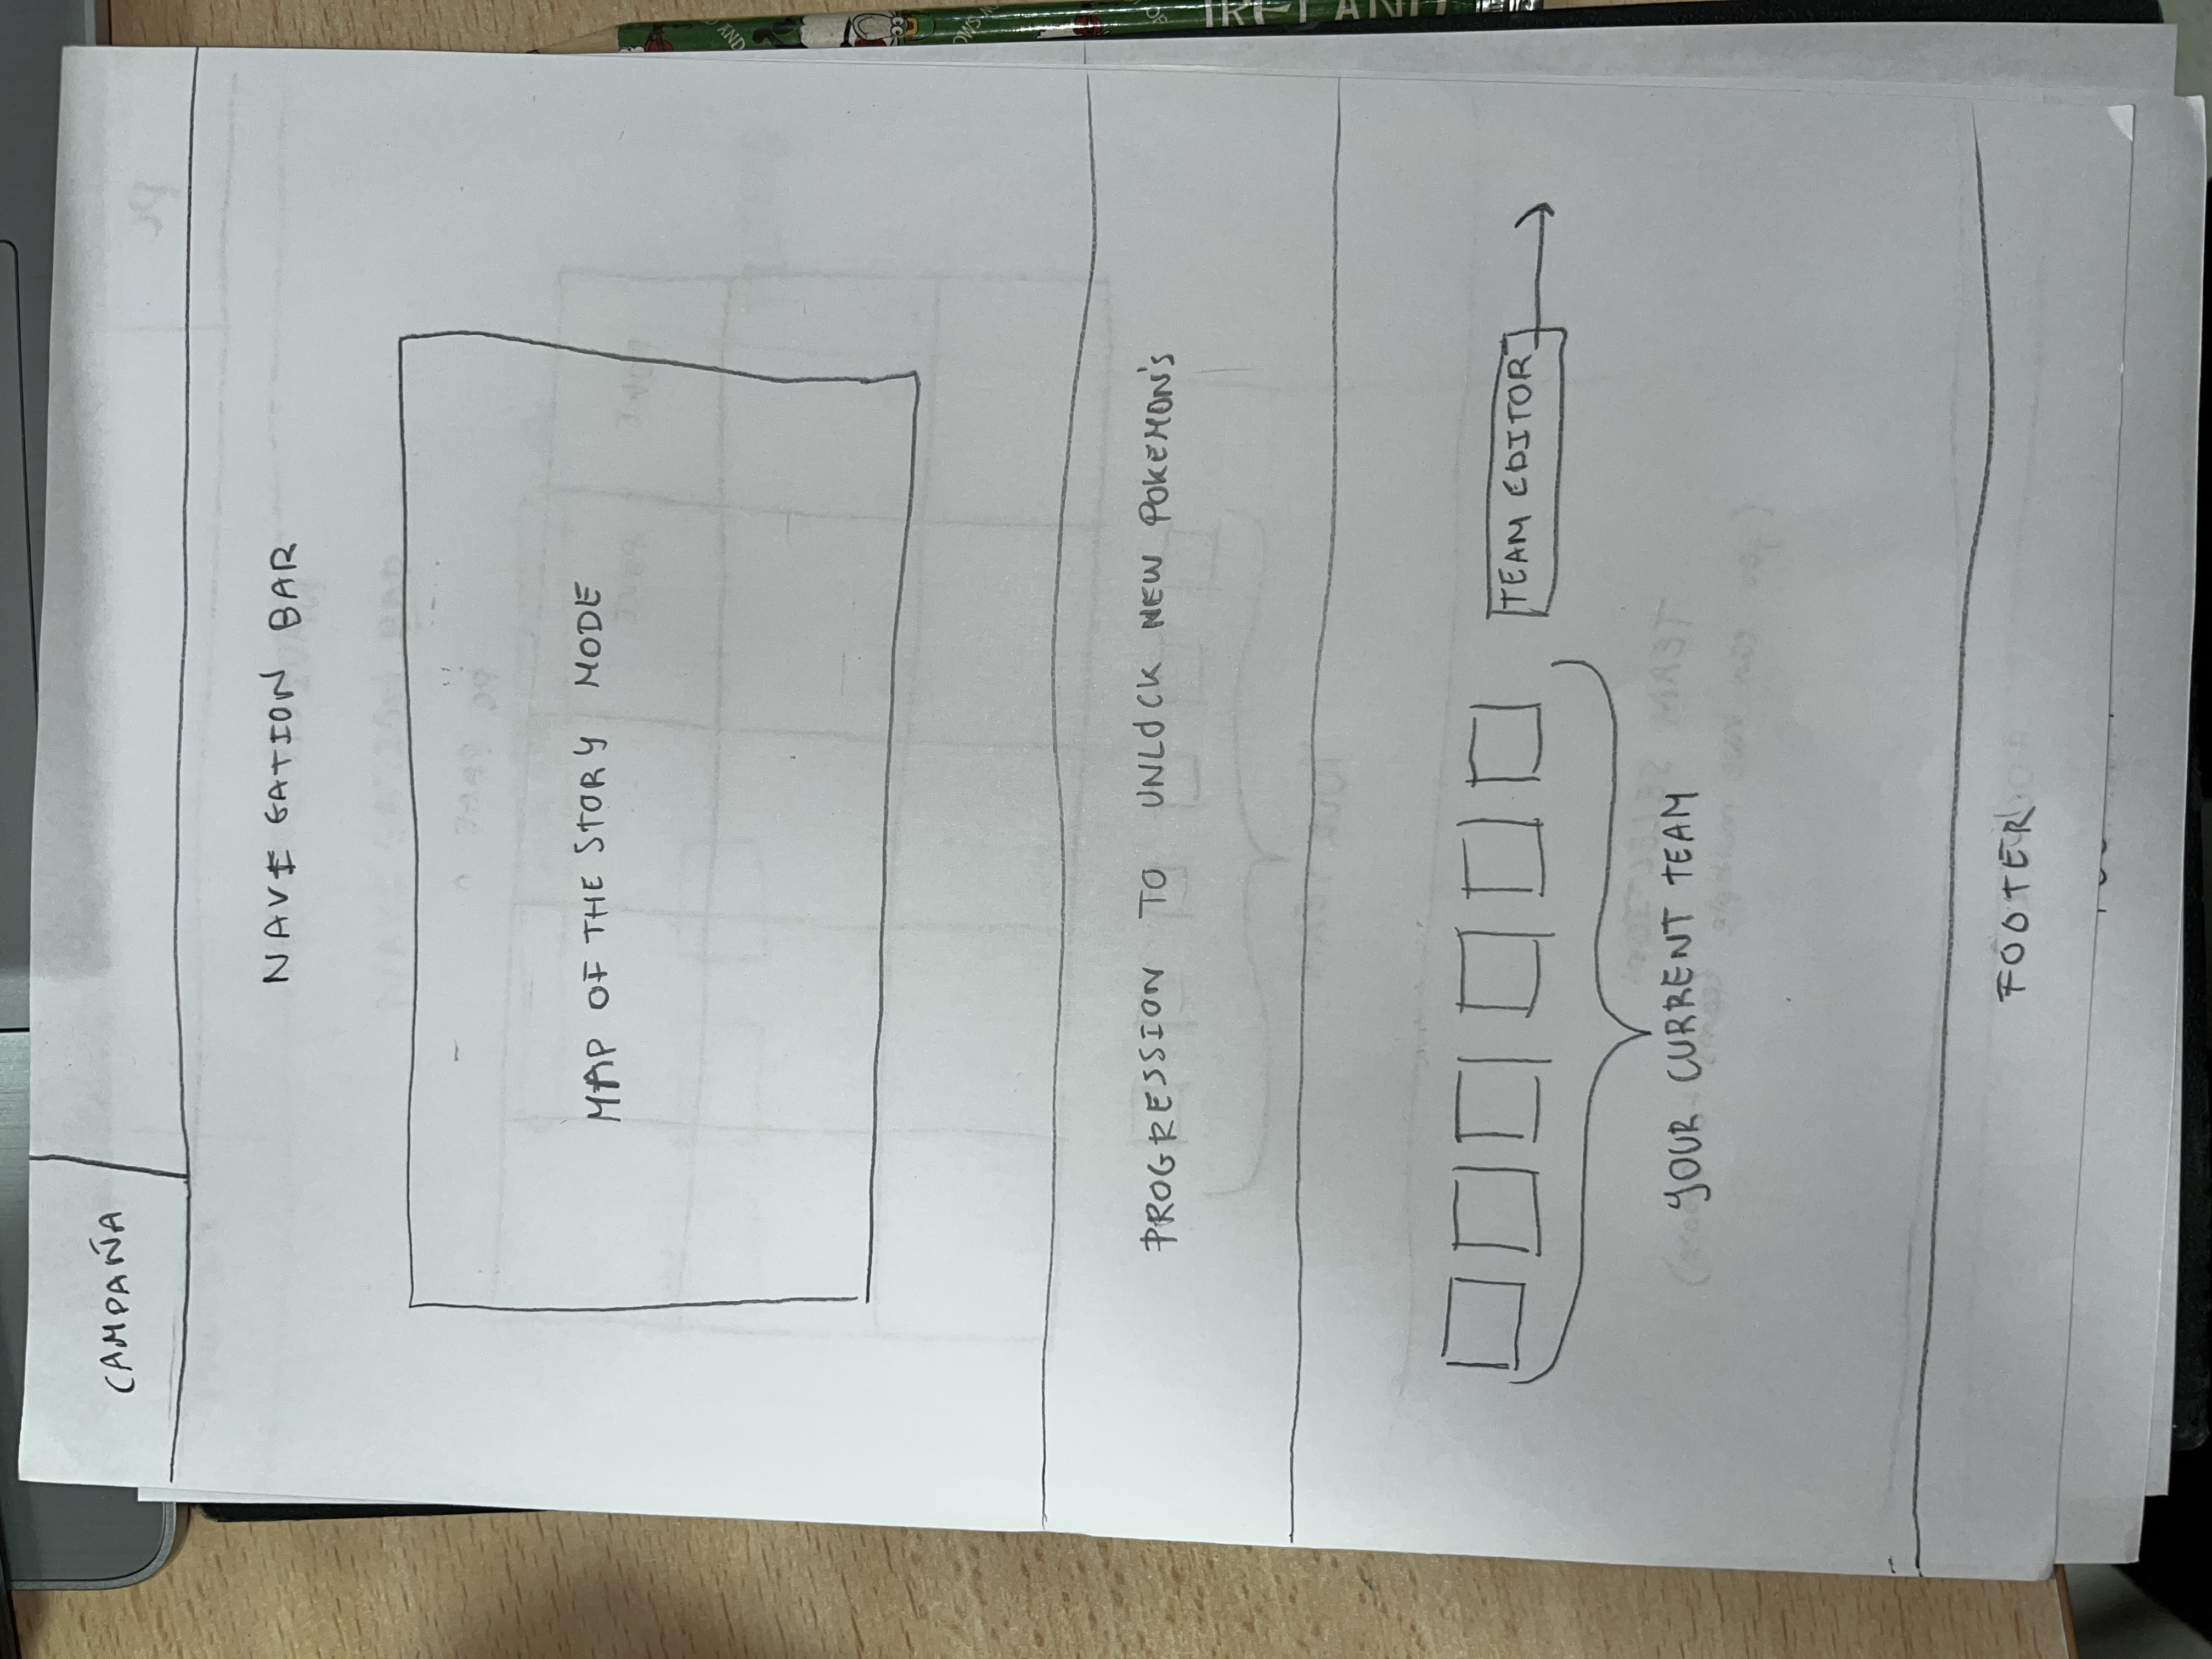 CAMPAÑA
NAVIGATION BAR
MAP OF THE STORY MODE
PROGRESSION TO UNLOCK NEW POKEMON'S
TEAM EDITOR
YOUR CURRENT TEAM
FOOTER